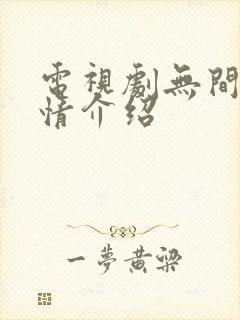 電視劇無間
情介紹
一夢黃粱